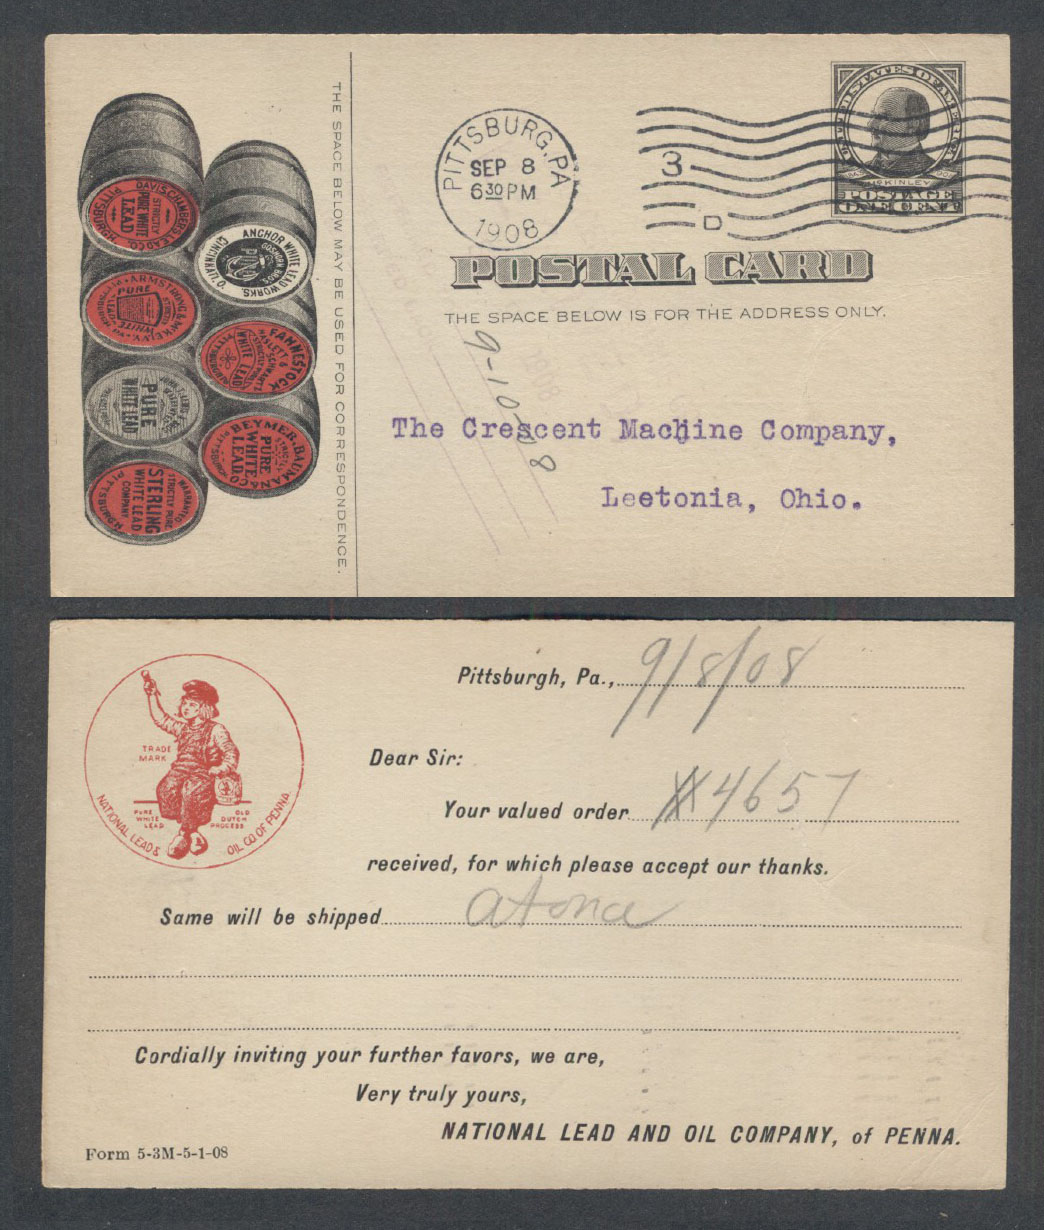 THE SPACE BELOW MAY BE USED FOR CORRESPONDENCE.
DAVIS CHAMBERS LEAD CO.
STRICTLY
PURE WHITE
LEAD
PITTSBURGH
ANCHOR WHITE LEAD WORKS.
CINCINNATI, O.
ARMSTRONG & McKELVY
PURE
WHITE
LEAD
FAHNESTOCK
WHITE LEAD
PITTSBURGH
PURE
WHITE LEAD
BEYMER, BAUMAN & CO.
STRICTLY
PURE
WHITE
LEAD.
PITTSBURGH
WARRANTED
STRICTLY PURE
STERLING
WHITE LEAD
COMPANY
PITTSBURGH
PITTSBURG, PA
SEP 8
6 30 PM
1908
3
D
UNITED STATES OF AMERICA
McKINLEY
POSTAGE
ONE CENT
POSTAL CARD
THE SPACE BELOW IS FOR THE ADDRESS ONLY.
9-10-08
1908
The Crescent Machine Company,
Leetonia, Ohio.
TRADE
MARK
PURE
WHITE
LEAD
OLD
DUTCH
PROCESS
NATIONAL LEAD & OIL CO OF PENNA
Pittsburgh, Pa., 9/8/08
Dear Sir:
Your valued order #4657
received, for which please accept our thanks.
Same will be shipped at once
Cordially inviting your further favors, we are,
Very truly yours,
NATIONAL LEAD AND OIL COMPANY, of PENNA.
Form 5-3M-5-1-08